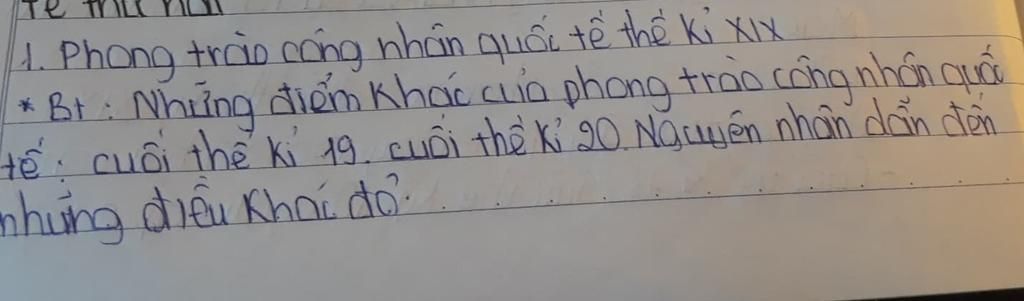 1. Phong trào công nhân quốc tế thế kỉ XIX
* Bt: Những điểm khác của phong trào công nhân quốc
tế: cuối thế kỉ 19. cuối thế kỉ 20. Nguyên nhân dẫn đến
những điều khác đó?